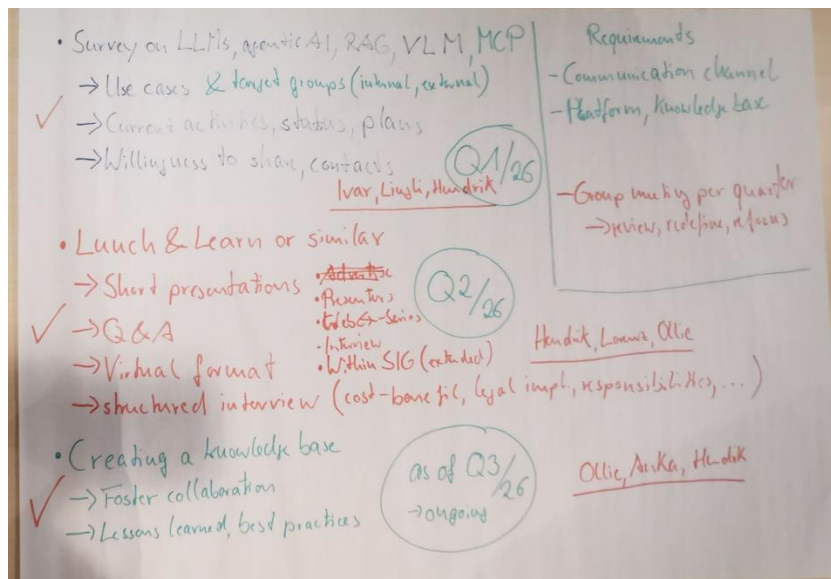 • Survey on LLMs, agentic AI, RAG, VLM, MCP
→ Use cases & target groups (internal, external)
→ Current activities, status, plans
→ Willingness to share, contacts
Q1/26
Ivar, Hendrik
Requirements
- Communication channel
- Platform, knowledge base
- Group meeting per quarter
→ review, redefine, refocus
• Lunch & Learn or similar
→ Short presentations
→ Q & A
→ Virtual format
→ structured interview (cost-benefit, legal impl., responsibilities, ...)
• Presenters
• WebEx-Series
• Interview
• Within SIG (extended)
Q2/26
Hendrik, Ollie
• Creating a knowledge base
→ Foster collaboration
→ Lessons learned, best practices
as of Q3/26
→ ongoing
Ollie, Hendrik